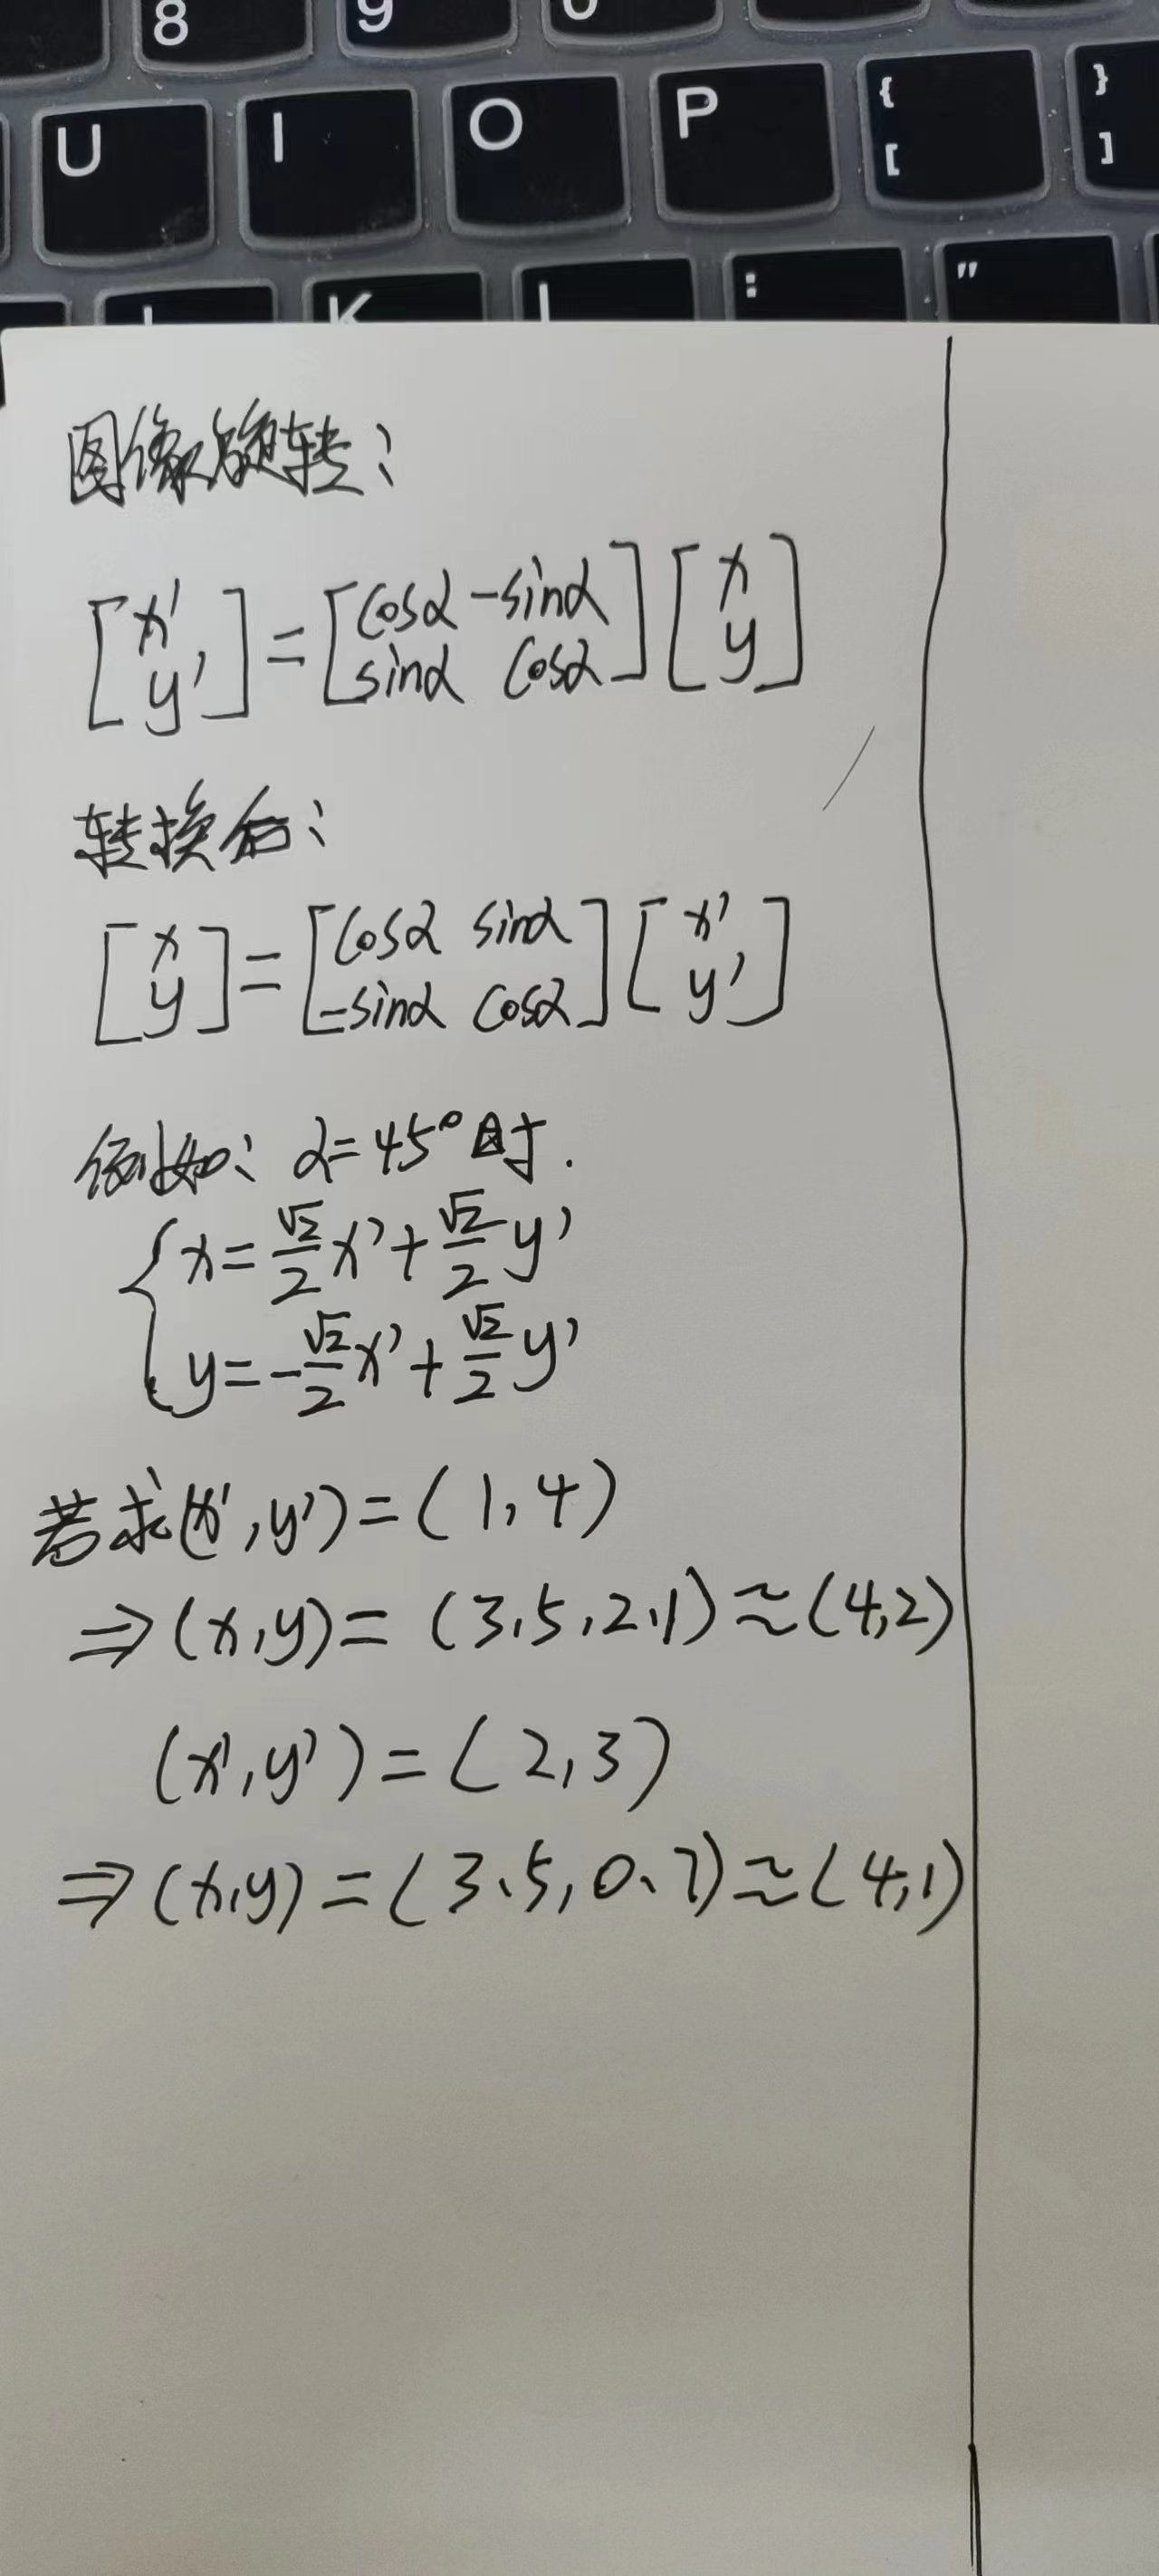 8 9 0
U I O P { [ } ]
K L : "
图像旋转:
[x' y'] = [cosα -sinα sinα cosα] [x y]
转换后:
[x y] = [cosα sinα -sinα cosα] [x' y']
例如: α=45°时.
x = √2/2 x' + √2/2 y'
y = -√2/2 x' + √2/2 y'
若求(x',y')=(1,4)
⇒(x,y)=(3.5,2.1)≈(4,2)
(x',y')=(2,3)
⇒(x,y)=(3.5,0.7)≈(4,1)